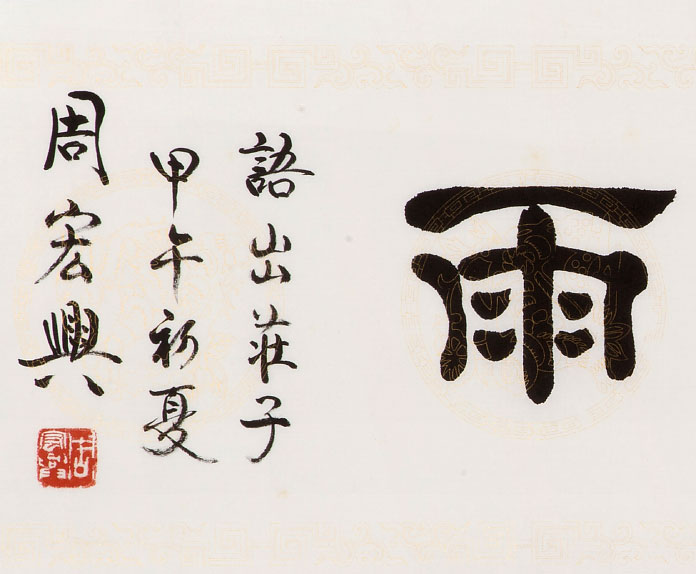 雨
語出莊子
甲午初夏
周宏興